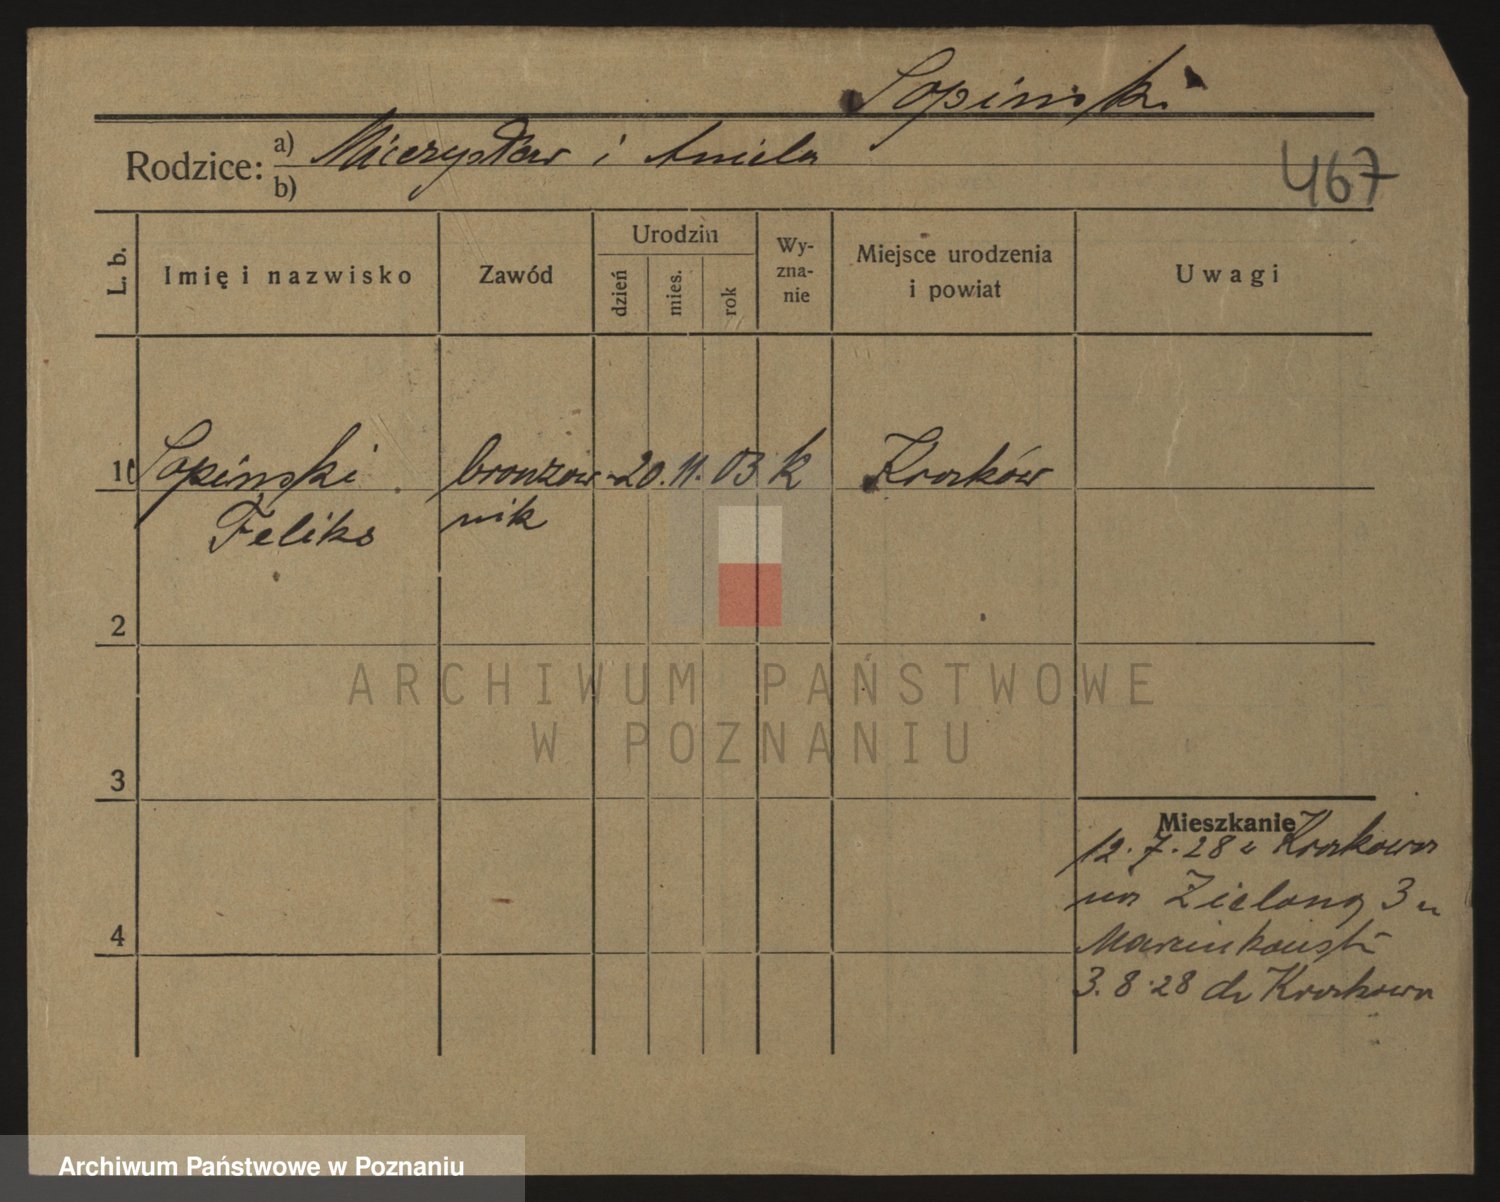 Łopiński
Rodzice: a) Mieczysław i Aniela
b)
467
L. b.
Imię i nazwisko
Zawód
Urodzin
dzień
mies.
rok
Wy-
zna-
nie
Miejsce urodzenia
i powiat
Uwagi
1 Łopiński bronzow- 20. 11. 03 k Kraków
Feliks nik
2
ARCHIWUM PAŃSTWOWE
W POZNANIU
3
Mieszkanie
12. 7. 28 z Krakowa
na Zieloną 3 u
3. 8. 28 do Krakowa
4
Archiwum Państwowe w Poznaniu